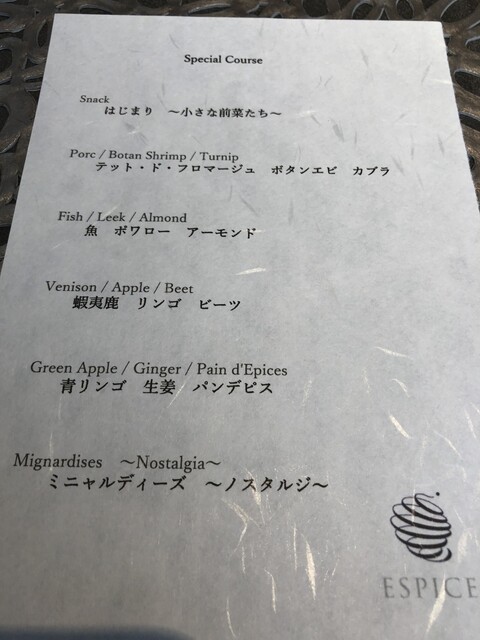 Special Course
Snack
はじまり　～小さな前菜たち～
Porc / Botan Shrimp / Turnip
テット・ド・フロマージュ　ボタンエビ　カブラ
Fish / Leek / Almond
魚　ポワロー　アーモンド
Venison / Apple / Beet
蝦夷鹿　リンゴ　ビーツ
Green Apple / Ginger / Pain d'Epices
青リンゴ　生姜　パンデピス
Mignardises　～Nostalgia～
ミニャルディーズ　～ノスタルジ～
ESPICE